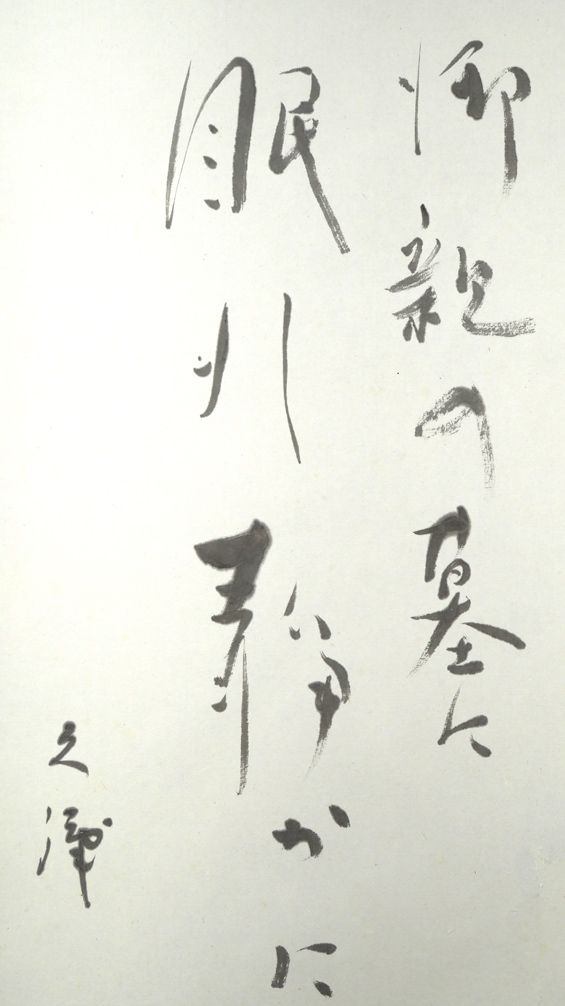 御親の墓に
眠れ静かに
久